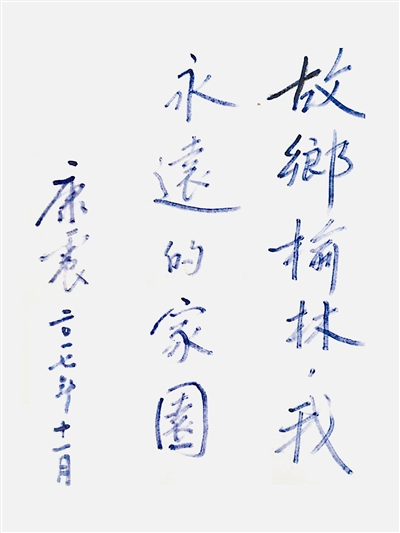 故鄉榆林，我
永遠的家園
康震 二〇一七年十一月